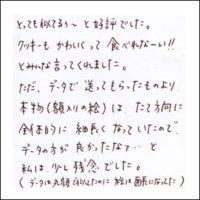 とっても似てるぅ〜 と 好評でした。
クッキーも かわいくって 食べれなーい!!
とみんな言ってくれました。
ただ、データで 送ってもらったものより
本物(額入りの絵)は たて方向に
全体的に 細長く なっていたので
データの方が 良かったなァ… と
私は 少し 残念 でした。
(データは丸顔 なのに 絵は面長になってた)